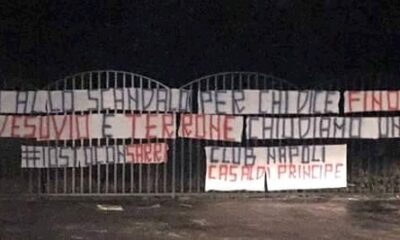 ALLO SCANDALO PER CHI VICE FINO
VESUVIO E TERRONE CHIUDIAMO UN
#IOSTOCONSARRI CLUB NAPOLI
CASAL DI PRINCIPE